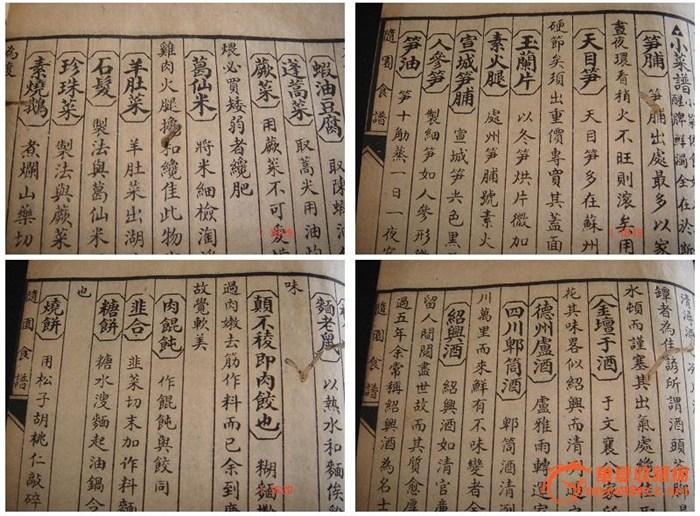 蝦油豆腐 取陳蝦油
蓬蒿菜 取蒿尖用油灼
蕨菜 用蕨菜不可愛惜
煨必買矮弱者纔肥
葛仙米 將米細檢淘
雞肉火腿攙和纔佳此物
羊肚菜 羊肚菜出湖
石髮 製法與葛仙米
珍珠菜 製法與蕨菜
素燒鵝 煮爛山藥切
為度
小菜譜
醒脾解濁全在於斯
笋脯 笋脯出處最多以家
晝夜環看稍火不旺則滾矣用
天目笋 天目笋多在蘇州
硬節矣須出重價專買其蓋面
玉蘭片 以冬笋烘片微加
素火腿 處州笋脯號素火
宣城笋脯 宣城笋尖色黑
人參笋 製細笋如人參形
笋油 笋十觔蒸一日一夜
隨園食譜
麵老鼠 以熱水和麵俟
味
顛不稜即肉餃也 糊麵
過肉嫩去筋作料而已余到
故覺軟美
肉餛飩 作餛飩與餃同
韭合 韭菜切末加作料
糖餅 糖水溲麵起油鍋令
也
燒餅 用松子胡桃仁敲碎
隨園食譜
罈者為佳諺所謂酒頭茶
水頓而謹塞其出氣處
金壇于酒 于文襄
德州盧酒 盧雅雨轉運
花其味略似紹興而清
四川郫筒酒 郫筒酒清冽
川萬里而來鮮有不味變者
紹興酒 紹興酒如清官廉
留人間閱盡世故而其質愈厚
過五年余常稱紹興酒為名士
隨園食譜